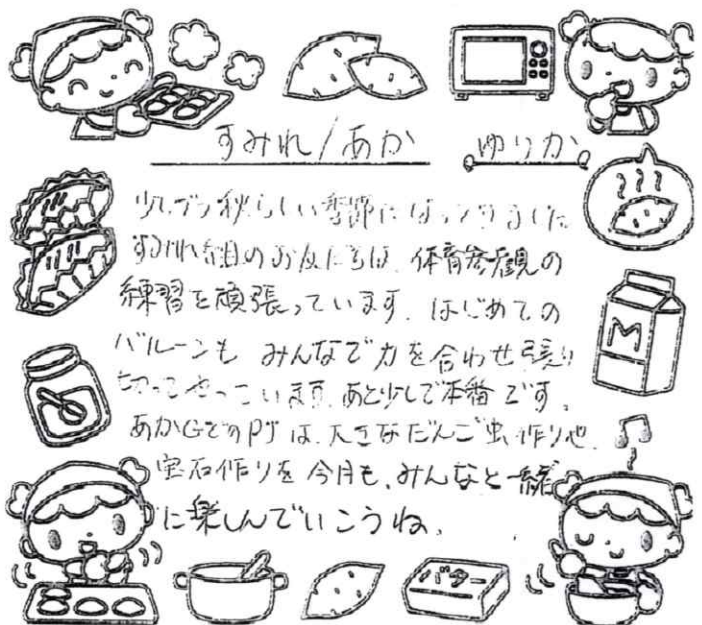 すみれ/あか ゆりか
少しずつ秋らしい季節になってきました
すみれ組のお友だちは、体育参観の
練習を頑張っています。はじめての
バルーンも みんなで力を合わせ張り
切ってやっています。あと少しで本番です。
あかGでのPJは、大きなだんご虫作りや
宝石作りを今月も、みんなと一緒
に楽しんでいこうね。
M
バター